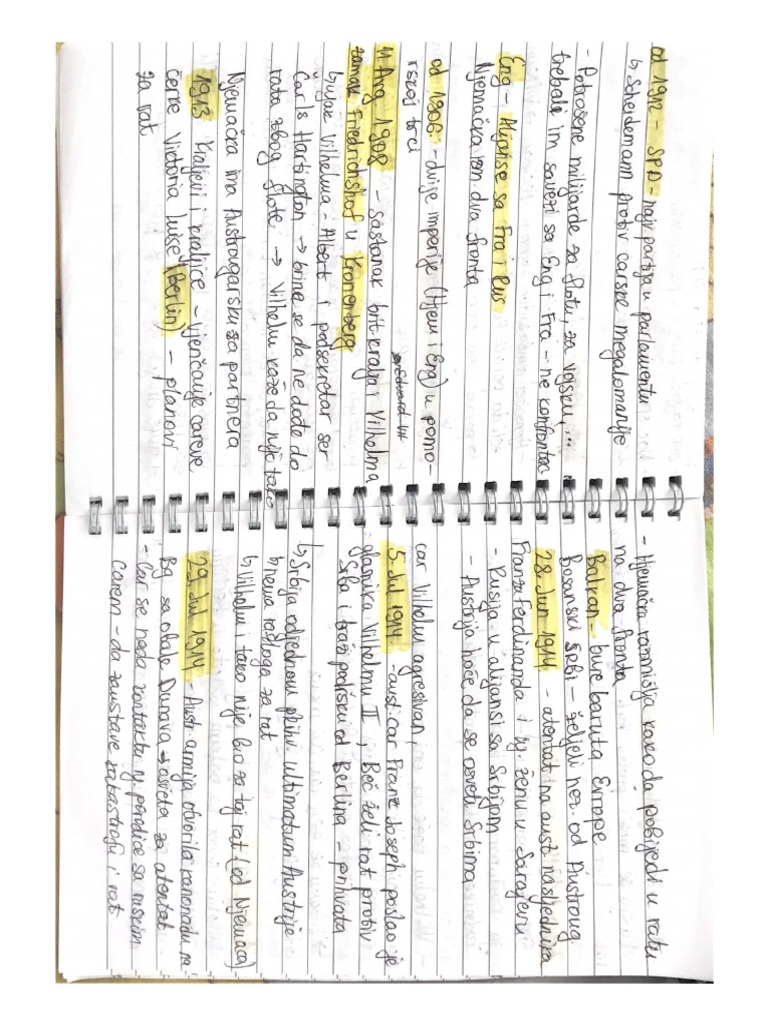 od 1912 - SPD - najv partija u parlamentu
↳ Scheidemann protiv carske megalomanije
- Potrošene milijarde za flotu, za vojsku,...
trebali im savezi sa Eng i Fra - ne konfronta
Eng - Alijanse sa Fra i Rus
Njemačka dva fronta
od 1906: - dvije imperije (Njem i Eng) u pomo-
rskoj trci
Edvard VII
11. Aug 1908 - sastanak brit kralja i Vilhelma
zamak Friedrichshof u Kronenberg
↳ ujak Vilhelma - Albert i podsekretar ser
Čarls Hartington → brine se da ne dođe do
rata zbog flote → Vilhelm kaže da nije tako
Njemačka ima Austrougarsku za partnera
1913 Kraljevi i kraljice - vjenčanje careve
ćerke Victoria Luise (Berlin) - planovi
za rat
- Njemačka razmišlja kako da pobijedi u ratu
na dva fronta
Balkan - bure baruta Evrope
Bosanski srbi - željeli nez. od Austroug
28. Jun 1914 - atentat na aust. nasljednika
Franza Ferdinanda i nj. ženu u Sarajevu
- Rusija u alijansi sa Srbijom
- Austrija hoće da se osveti Srbima
car Vilhelm agresivan,
5. Jul 1914 - aust. car Franz Joseph poslao je
glasnika Vilhelmu II, Beč želi rat protiv
Srba i traži podršku od Berlina - prihvata
↳ Srbija odjednom prihv. ultimatum Austrije
↳ nema razloga za rat
↳ Vilhelm i tako nije bio za taj rat (od Njemaca)
29. Jul 1914 - Austr. armija otvorila kanonadu na
Bg sa obale Dunava → osveta za atentat
- Car se nada kontaktu nj. porodice sa ruskim
Carem - da zaustave katastrofu i rat